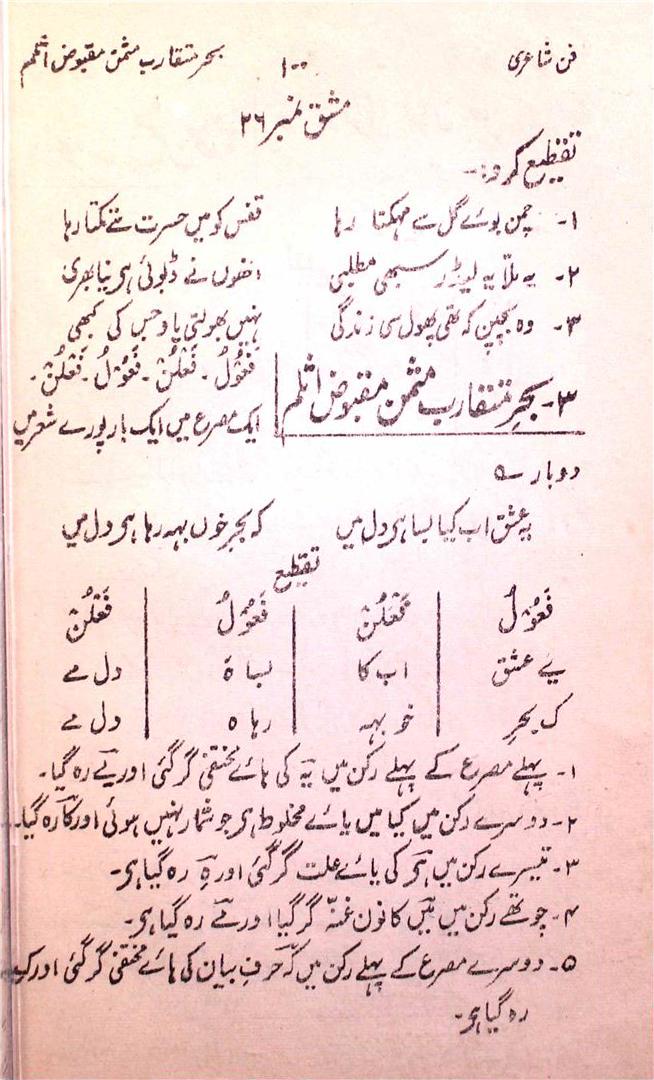 فن شاعری ۱۰۰ بحر متقارب مثمن مقبوض اثلم
مشق نمبر ۲۶
تقطیع کرو:۔
۱۔ چمن بوئے گل سے مہکتا رہا قفس کو میں حسرت سے تکتا رہا
۲۔ یہ ملّا یہ لیڈر سبھی مطلبی انھوں نے ڈبوئی ہر نیا بھری
۳۔ وہ بچپن کہ تھی پھول سی زندگی نہیں بھولتی یاد جس کی کبھی
۳۔ بحرِ متقارب مثمن مقبوض اثلم فَعُوْلُ۔ فَعْلُنْ۔ فَعُوْلُ۔ فَعْلُنْ۔
ایک مصرع میں ایک بار پورے شعر میں
دوبار ے
یہ عشق اب کیا بسا ہر دل میں کہ بحرِ خوں بہہ رہا ہر دل میں
تقطیع
فَعُوْلُ فَعْلُنْ فَعُوْلُ فَعْلُنْ
یے عشق اب کا بسا ہَ دل مے
ک بحرِ خو بہہ رہا ہ دل مے
۱۔ پہلے مصرع کے پہلے رکن میں یہ کی ہائے مختفی گر گئی اور یے رہ گیا۔
۲۔ دوسرے رکن میں کیا میں یائے مخلوط ہر جو شمار نہیں ہوئی اور کا رہ گیا۔
۳۔ تیسرے رکن میں ہر کی یائے علت گر گئی اور ہِ رہ گیا ہر۔
۴۔ چوتھے رکن میں میں کا نون غنّہ گر گیا اور مے رہ گیا ہر۔
۵۔ دوسرے مصرع کے پہلے رکن میں کہ حرفِ بیان کی ہائے مختفی گر گئی اور ک
رہ گیا ہر۔